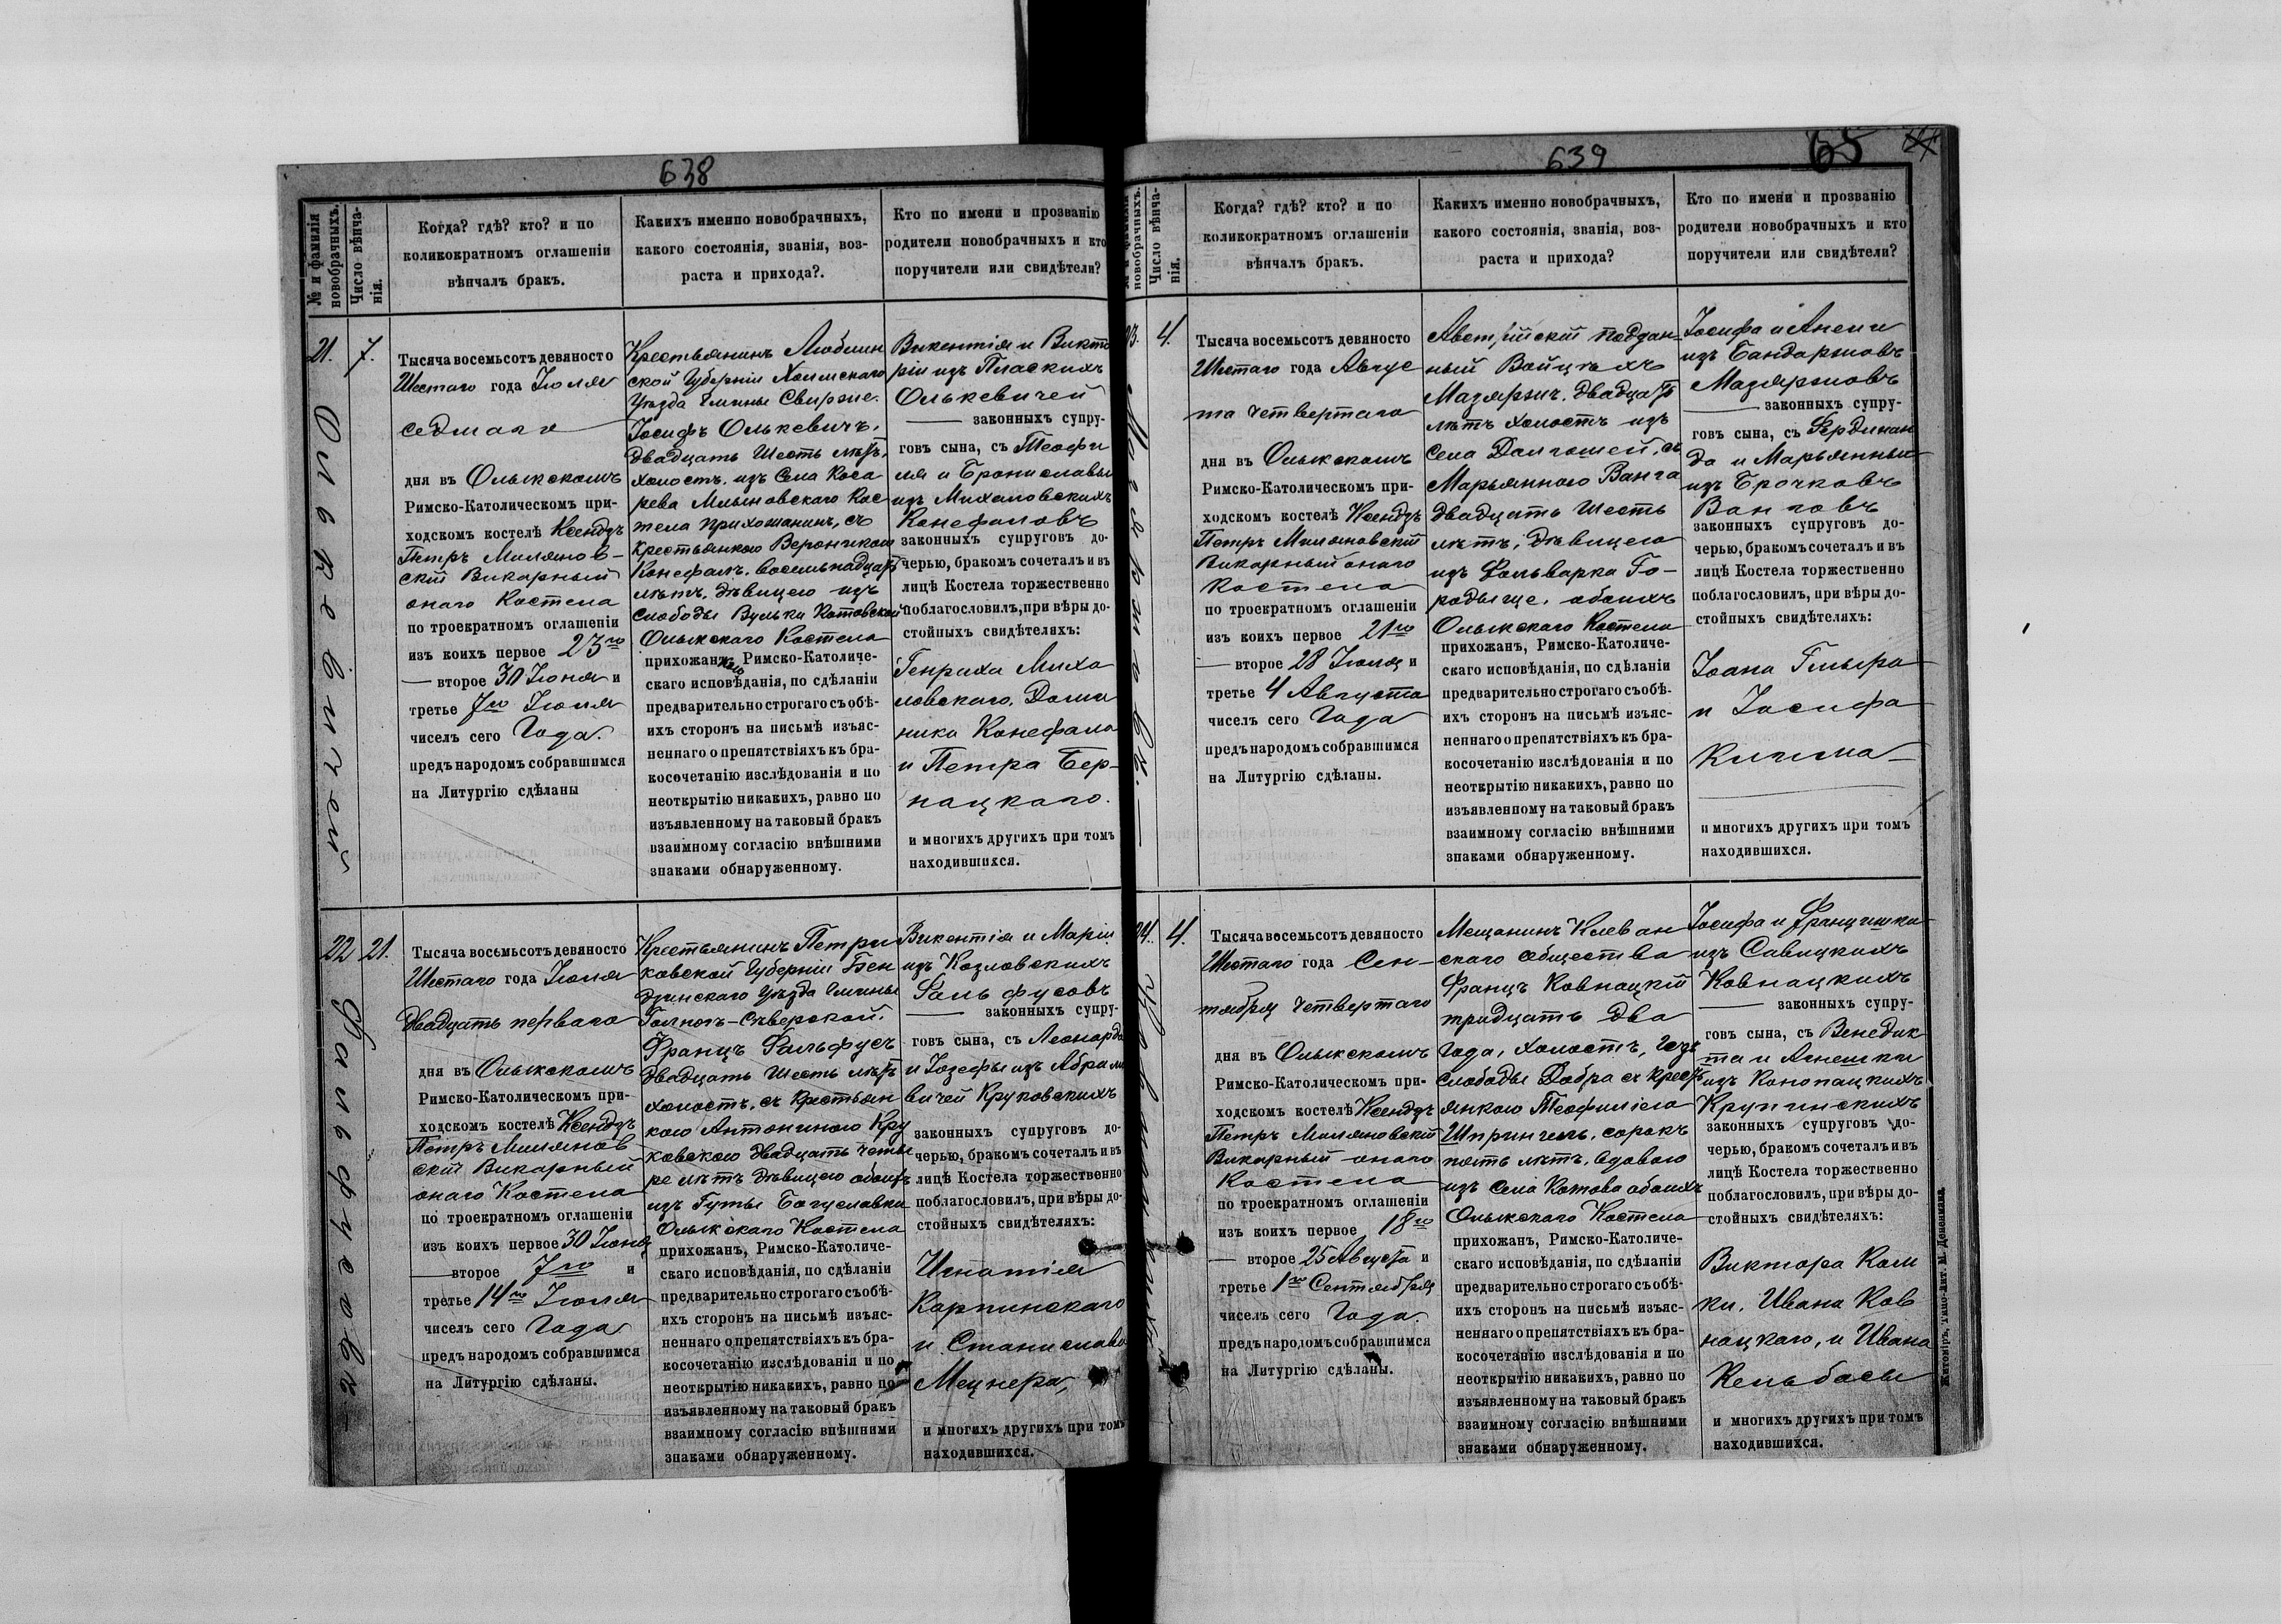 638
№ и фамилія новобрачныхъ.
Число вѣнча-
нія.
Когда? гдѣ? кто? и по
коликократномъ оглашеніи
вѣнчалъ бракъ.
Какихъ именно новобрачныхъ,
какого состоянія, званія, воз-
раста и прихода?.
Кто по имени и прозванію
родители новобрачныхъ и кто
поручители или свидѣтели?
21.
Олькевичей
7.
Тысяча восемьсотъ девяносто
Шестаго года Іюля
седмаго
дня въ Олыкскомъ
Римско-Католическомъ при-
ходскомъ костелѣ Ксендзъ
Петръ Милянов-
скій Викарный
онаго Костела
по троекратномъ оглашеніи
изъ коихъ первое 23го
— второе 30 Іюня и
третье 7го Іюля
чиселъ сего Года.
предъ народомъ собравшимся
на Литургію сдѣланы
Крестьянинъ Люблин
ской Губерніи Холмскаго
Уѣзда Гмины Свирже.
Іосифъ Олькевичъ,
двадцать Шесть лѣтъ,
холостъ, изъ Села Коса
рева Млыновскаго Кос
тела прихожанинъ, съ
крестьянкою Вероникою
Конефалъ, восемьнадцать
лѣтъ, дѣвицею изъ
слободы Вульки Котовской
Олыкскаго Костела
прихожанкою, Римско-Католиче-
скаго исповѣданія, по сдѣланіи
предварительно строгаго съ обѣ-
ихъ сторонъ на письмѣ изъяс-
неннаго о препятствіяхъ къ бра-
косочетанію изслѣдованія и по
неоткрытію никакихъ, равно по
изъявленному на таковый бракъ
взаимному согласію внѣшними
знаками обнаруженному.
Викентія и Викто
ріи изъ Пласкихъ
Олькевичей
— законныхъ супру-
говъ сына, съ Теофи
ля и Брониславы
изъ Михаловскихъ
Конефаловъ
законныхъ супруговъ до-
черью, бракомъ сочеталъ и въ
лицѣ Костела торжественно
поблагословилъ, при вѣры до-
стойныхъ свидѣтеляхъ:
Генриха Миха
ловскаго, Доми
ника Конефала
и Петра Бер-
нацкаго.
и многихъ другихъ при томъ
находившихся.
22
Фальфусовъ
21.
Тысяча восемьсотъ девяносто
Шестаго года Іюля
двадцать перваго
дня въ Олыкскомъ
Римско-Католическомъ при-
ходскомъ костелѣ Ксендзъ
Петръ Милянов
скій Викарный
онаго Костела
по троекратномъ оглашеніи
изъ коихъ первое 30 Іюня
— второе 7го и
третье 14го Іюля
чиселъ сего Года
предъ народомъ собравшимся
на Литургію сдѣланы.
Крестьянинъ Петри
ковской Губерніи Бен
дзинскаго Уѣзда Гмины
Францъ Фальфусъ
двадцать Шесть лѣтъ
холостъ, съ крестьян
кою Антониною Кру
ковскою двадцать четы
ре лѣтъ дѣвицею обоихъ
изъ Гуты Богуславки
Олыкскаго Костела
прихожанъ, Римско-Католиче-
скаго исповѣданія, по сдѣланіи
предварительно строгаго съ обѣ-
ихъ сторонъ на письмѣ изъяс-
неннаго о препятствіяхъ къ бра-
косочетанію изслѣдованія и по
неоткрытію никакихъ, равно по
изъявленному на таковый бракъ
взаимному согласію внѣшними
знаками обнаруженному.
Викентія и Маріи
изъ Козловскихъ
Фальфусовъ
— законныхъ супру-
говъ сына, съ Леонарда
и Іозефы изъ Абрамо
вичей Круковскихъ
законныхъ супруговъ до-
черью, бракомъ сочеталъ и въ
лицѣ Костела торжественно
поблагословилъ, при вѣры до-
стойныхъ свидѣтеляхъ:
Игнатія
Карпинскаго
и Станислава
Мецнера,
и многихъ другихъ при томъ
находившихся.
639
65
новобрачныхъ.
Число вѣнча-
нія.
Когда? гдѣ? кто? и по
коликократномъ оглашеніи
вѣнчалъ бракъ.
Какихъ именно новобрачныхъ,
какого состоянія, званія, воз-
раста и прихода?
Кто по имени и прозванію
родители новобрачныхъ и кто
поручители или свидѣтели?
23.
4.
Тысяча восемьсотъ девяносто
Шестаго года Авгус
та четвертаго
дня въ Олыкскомъ
Римско-Католическомъ при-
ходскомъ костелѣ Ксендзъ
Петръ Миляновскій
Викарный онаго
Костела
по троекратномъ оглашеніи
изъ коихъ первое 21го
— второе 28 Іюля и
третье 4 Августа
чиселъ сего Года
предъ народомъ собравшимся
на Литургію сдѣланы.
Австрійскій поддан-
ный Войцѣхъ
Мазяржъ, двадцать
лѣтъ холостъ изъ
Села Долгошей, съ
Марьянною Ванга
двадцать Шесть
лѣтъ, дѣвицею
изъ Фольварка Го-
родыще, обоихъ
Олыкскаго Костела
прихожанъ, Римско-Католиче-
скаго исповѣданія, по сдѣланіи
предварительно строгаго съ обѣ-
ихъ сторонъ на письмѣ изъяс-
неннаго о препятствіяхъ къ бра-
косочетанію изслѣдованія и по
неоткрытію никакихъ, равно по
изъявленному на таковый бракъ
взаимному согласію внѣшними
знаками обнаруженному.
Іосифа и Анели
изъ Бандаржовъ
Мазяржовъ
— законныхъ супру-
говъ сына, съ Фердинан
да и Марьянны
изъ Брочковъ
Ванговъ
законныхъ супруговъ до-
черью, бракомъ сочеталъ и въ
лицѣ Костела торжественно
поблагословилъ, при вѣры до-
стойныхъ свидѣтеляхъ:
Іоана
и Іосифа
и многихъ другихъ при томъ
находившихся.
24.
4.
Тысяча восемьсотъ девяносто
Шестаго года Сен-
тября четвертаго
дня въ Олыкскомъ
Римско-Католическомъ при-
ходскомъ костелѣ Ксендзъ
Петръ Миляновскій
Викарный онаго
Костела
по троекратномъ оглашеніи
изъ коихъ первое 18го
— второе 25 Августа и
третье 1го Сентября
чиселъ сего Года.
предъ народомъ собравшимся
на Литургію сдѣланы.
Мещанинъ Клеван
скаго общества
Францъ Ковнацкій
тридцать два
года, холостъ, изъ
слободы Добра съ крестъ
янкою Теофиліею
Шпрингель, сорокъ
пять лѣтъ, вдовою
изъ Села Котова обоихъ
Олыкскаго Костела
прихожанъ, Римско-Католиче-
скаго исповѣданія, по сдѣланіи
предварительно строгаго съ обѣ-
ихъ сторонъ на письмѣ изъяс-
неннаго о препятствіяхъ къ бра-
косочетанію изслѣдованія и по
неоткрытію никакихъ, равно по
изъявленному на таковый бракъ
взаимному согласію внѣшними
знаками обнаруженному.
Іосифа и Францишки
изъ Савицкихъ
Ковнацкихъ
— законныхъ супру-
говъ сына, съ Венедик
та и Агнешки
изъ Конопацкихъ
Крупинскихъ
законныхъ супруговъ до-
черью, бракомъ сочеталъ и въ
лицѣ Костела торжественно
поблагословилъ, при вѣры до-
стойныхъ свидѣтеляхъ:
Виктора Кам
ки, Ивана Ков
нацкаго, и Ивана
Кельбасы
и многихъ другихъ при томъ
находившихся.
Житоміръ, Типо-Лит. М. Дененмана.